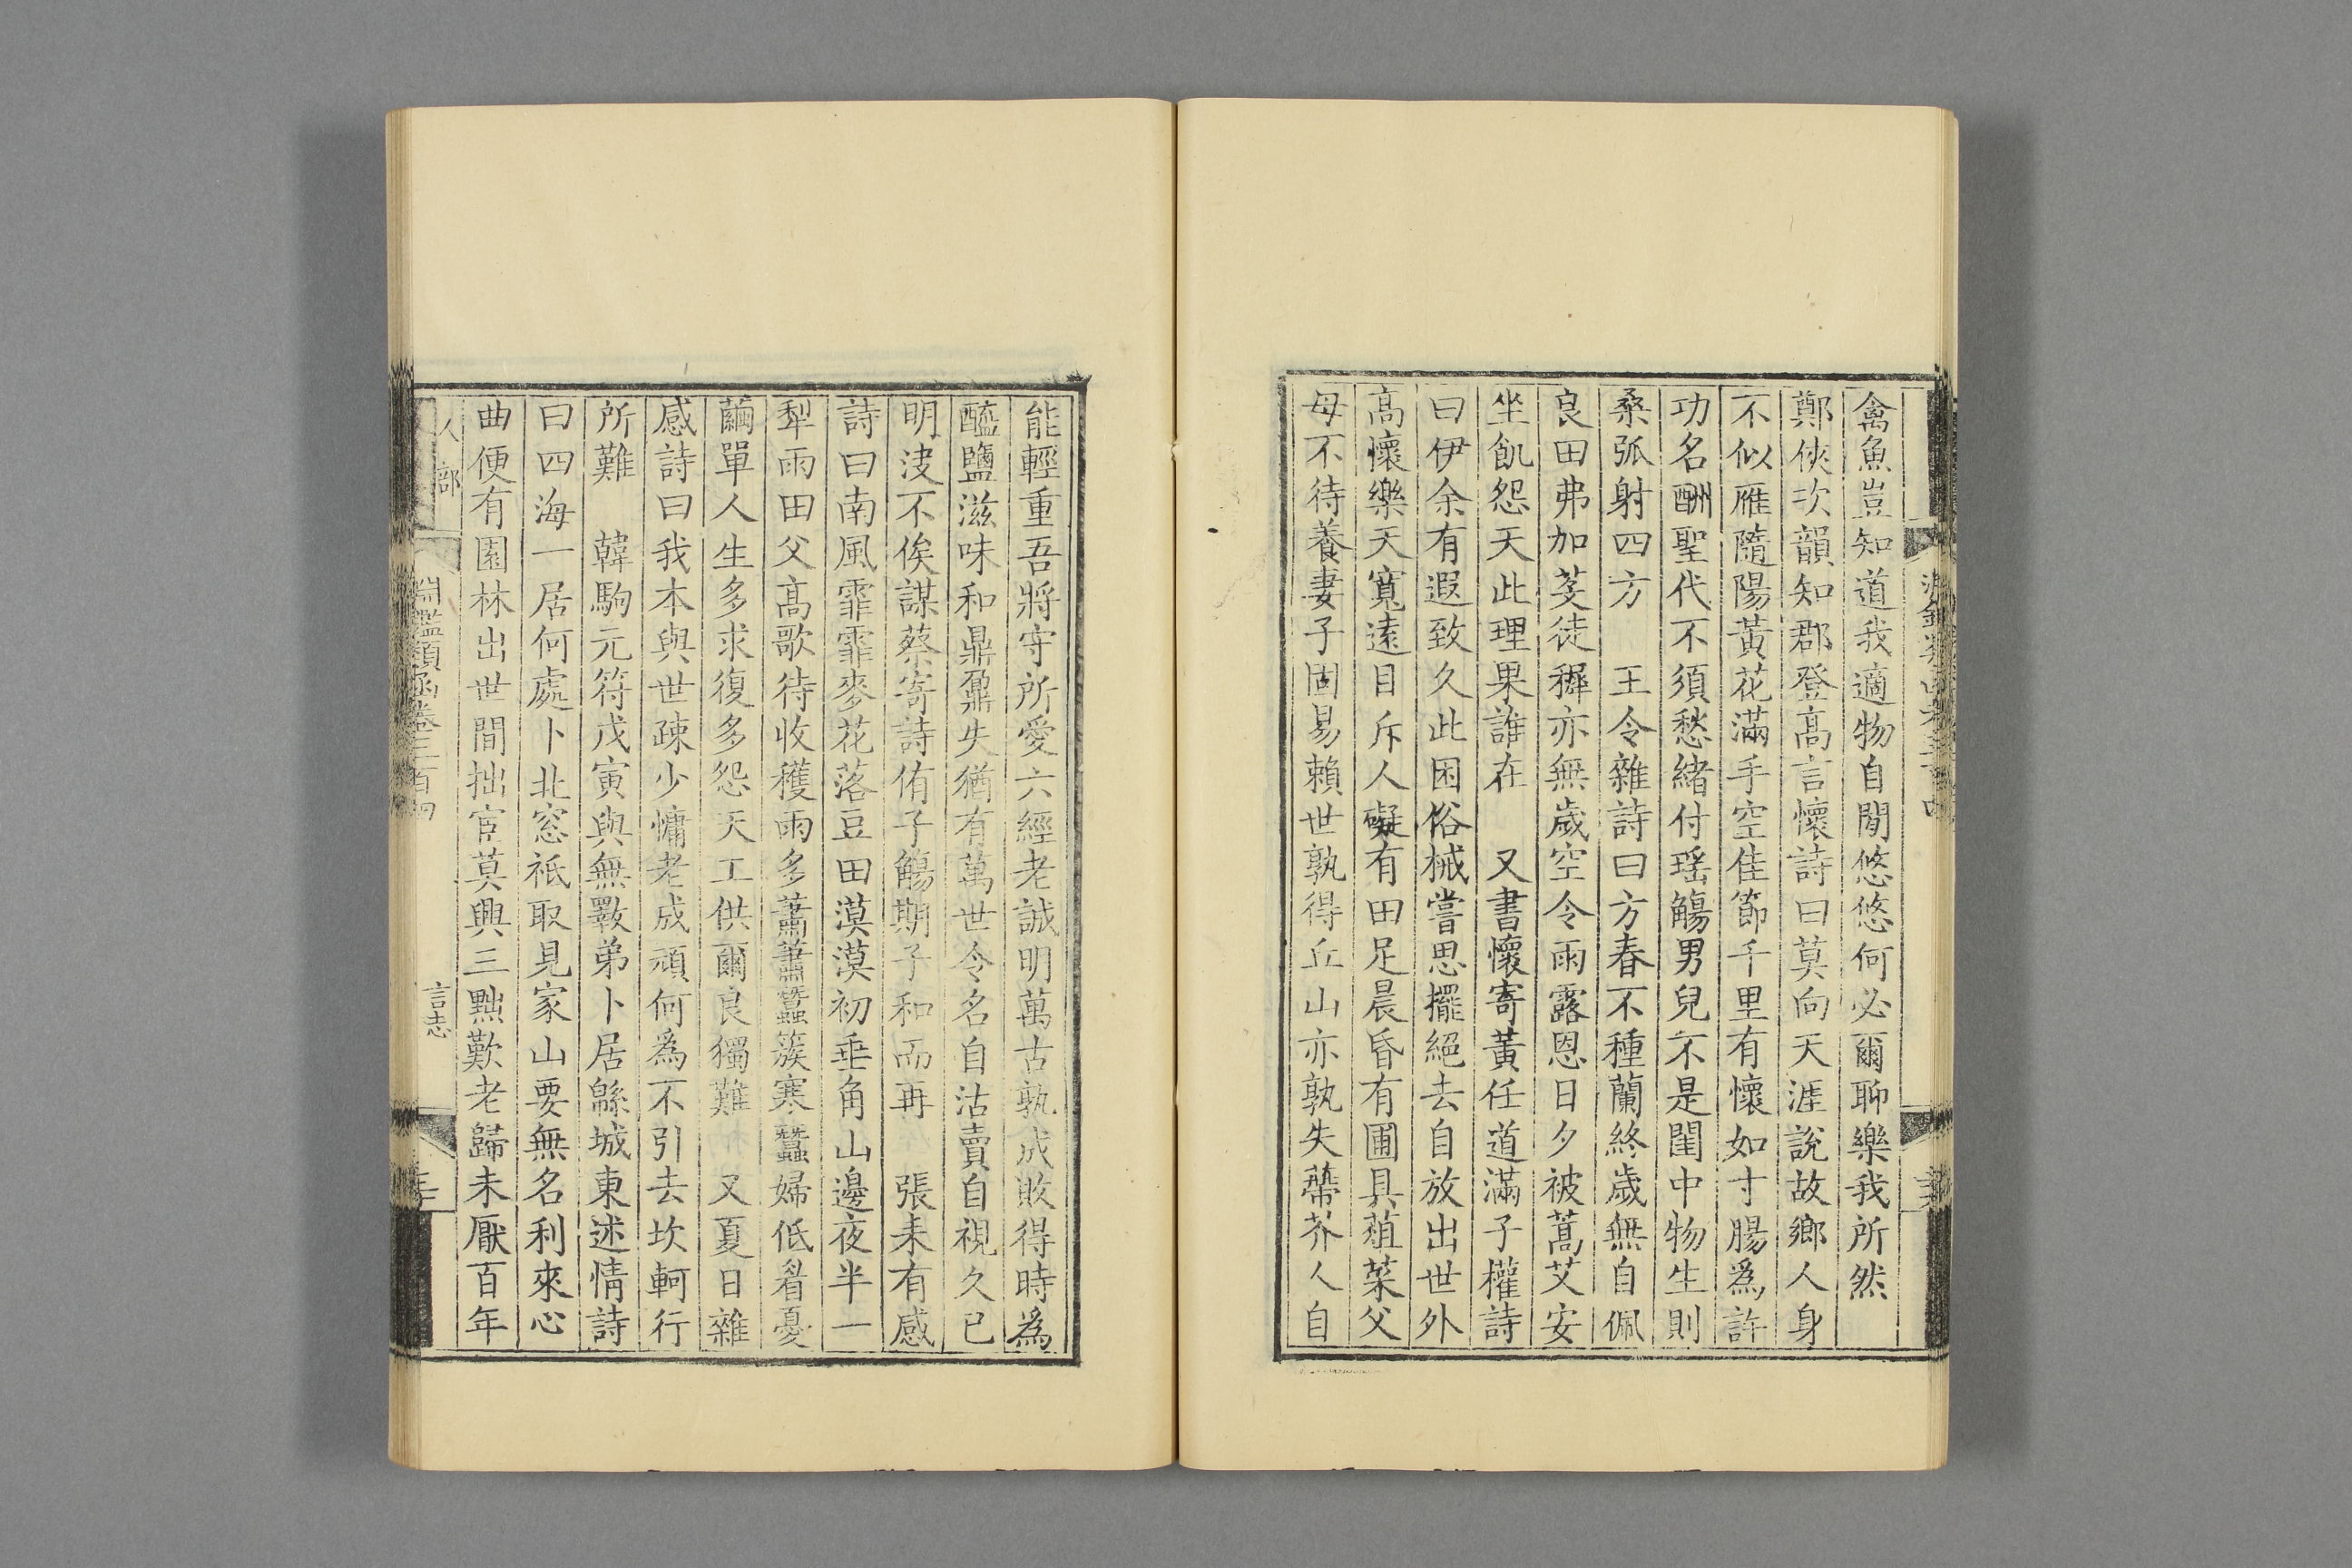 禽魚豈知道我適物自閒悠悠何必爾聊樂我所然
鄭俠次韻知郡登高言懷詩曰莫向天涯說故鄉人身
不似雁隨陽黃花滿手空佳節千里有懷如寸腸爲許
功名酬聖代不須愁緒付瑤觴男兒不是閨中物生則
桑弧射四方　王令雜詩曰方春不種蘭終歲無自佩
良田弗加芟徒穉亦無歲空令雨露恩日夕被蒿艾安
坐飢怨天此理果誰在　又書懷寄黃任道滿子權詩
曰伊余有遐致久此困俗械嘗思擺絕去自放出世外
高懷樂天寬遠目斥人礙有田足晨昏有圃具葅菜父
母不待養妻子固易賴世孰得丘山亦孰失蔕芥人自
能輕重吾將守所愛六經老誠明萬古孰成敗得時爲
醯鹽滋味和鼎鼐失猶有萬世令名自沽賣自視久已
明決不俟謀蔡寄詩侑子觴期子和而再　張耒有感
詩曰南風霏霏麥花落豆田漠漠初垂角山邊夜半一
犁雨田父高歌待收穫雨多蕭蕭蠶簇寒蠶婦低眉憂
繭單人生多求復多怨天工供爾良獨難　又夏日雜
感詩曰我本與世疎少慵老成頑何爲不引去坎軻行
所難　韓駒元符戊寅與無斁弟卜居緜城東述情詩
曰四海一居何處卜北窓祇取見家山要無名利來心
曲便有園林出世間拙宦莫興三黜歎老歸未厭百年
人部
淵鑑類函卷三百四
言志